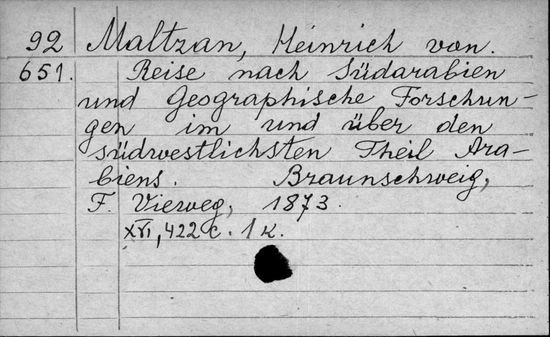 92 Maltzan, Heinrich von.
651. Reise nach Südarabien
und Geographische Forschun-
gen im und über den
südwestlichsten Theil Ara-
biens. Braunschweig,
F. Vieweg, 1873.
XVI, 422 c. 1 к.